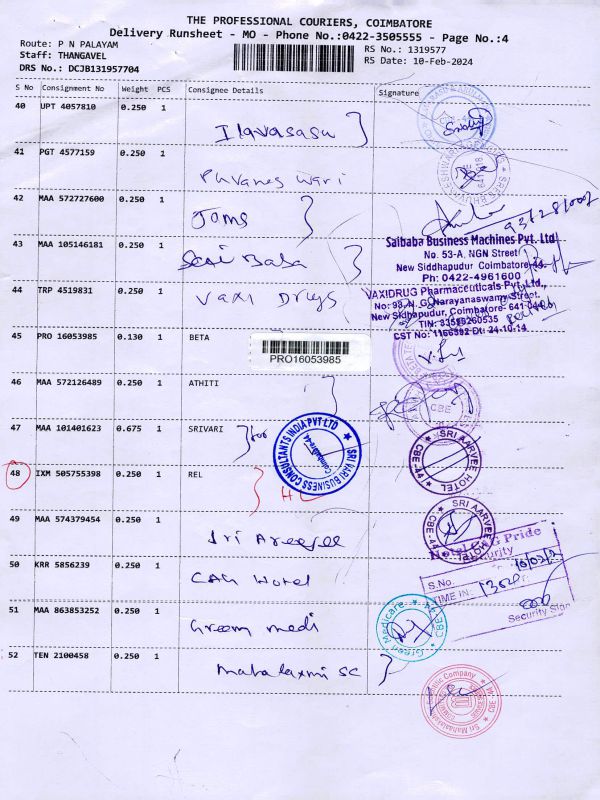 THE PROFESSIONAL COURIERS, COIMBATORE
Delivery Runsheet - MO - Phone No.:0422-3505555 - Page No.:4
Route: P N PALAYAM
Staff: THANGAVEL
DRS No.: DCJB131957704
RS No.: 1319577
RS Date: 10-Feb-2024
S No Consignment No Weight PCS Consignee Details Signature
40 UPT 4057810 0.250 1
Ilavasasu
41 PGT 4577159 0.250 1
Puvaneswari
42 MAA 572727600 0.250 1
Joms
43 MAA 105146181 0.250 1
Sai Baba
Saibaba Business Machines Pvt. Ltd
No. 53-A, NGN Street
New Siddhapudur Coimbatore-44.
Ph: 0422-4961600
44 TRP 4519831 0.250 1
Vaxi Drugs
VAXIDRUG Pharmaceuticals Pvt. Ltd.,
No: 98, N. G. Narayanaswamy Street,
New Sidhapudur, Coimbatore- 641 044.
TIN: 33586260535
CST No: 1166392 Dt: 24-10-14
45 PRO 16053985 0.130 1 BETA
PRO16053985
46 MAA 572126489 0.250 1 ATHITI
CBE
47 MAA 101401623 0.675 1 SRIVARI
for
SRI VARI BUSINESS CONSULTANTS INDIA PVT LTD
Coimbatore-44
SRI AARVEE HOTEL
CBE-44
48 IXM 505755398 0.250 1 REL
49 MAA 574379454 0.250 1
Sri Areejee
SRI AARVEE HOTEL
CBE-44
50 KRR 5856239 0.250 1
CAG Hotel
Hotel CAG Pride
Security
S.No.
TIME IN:
Security Sign
51 MAA 863853252 0.250 1
Green medi
Green Medicare
CBE-44
52 TEN 2100458 0.250 1
Mahalaxmi SC